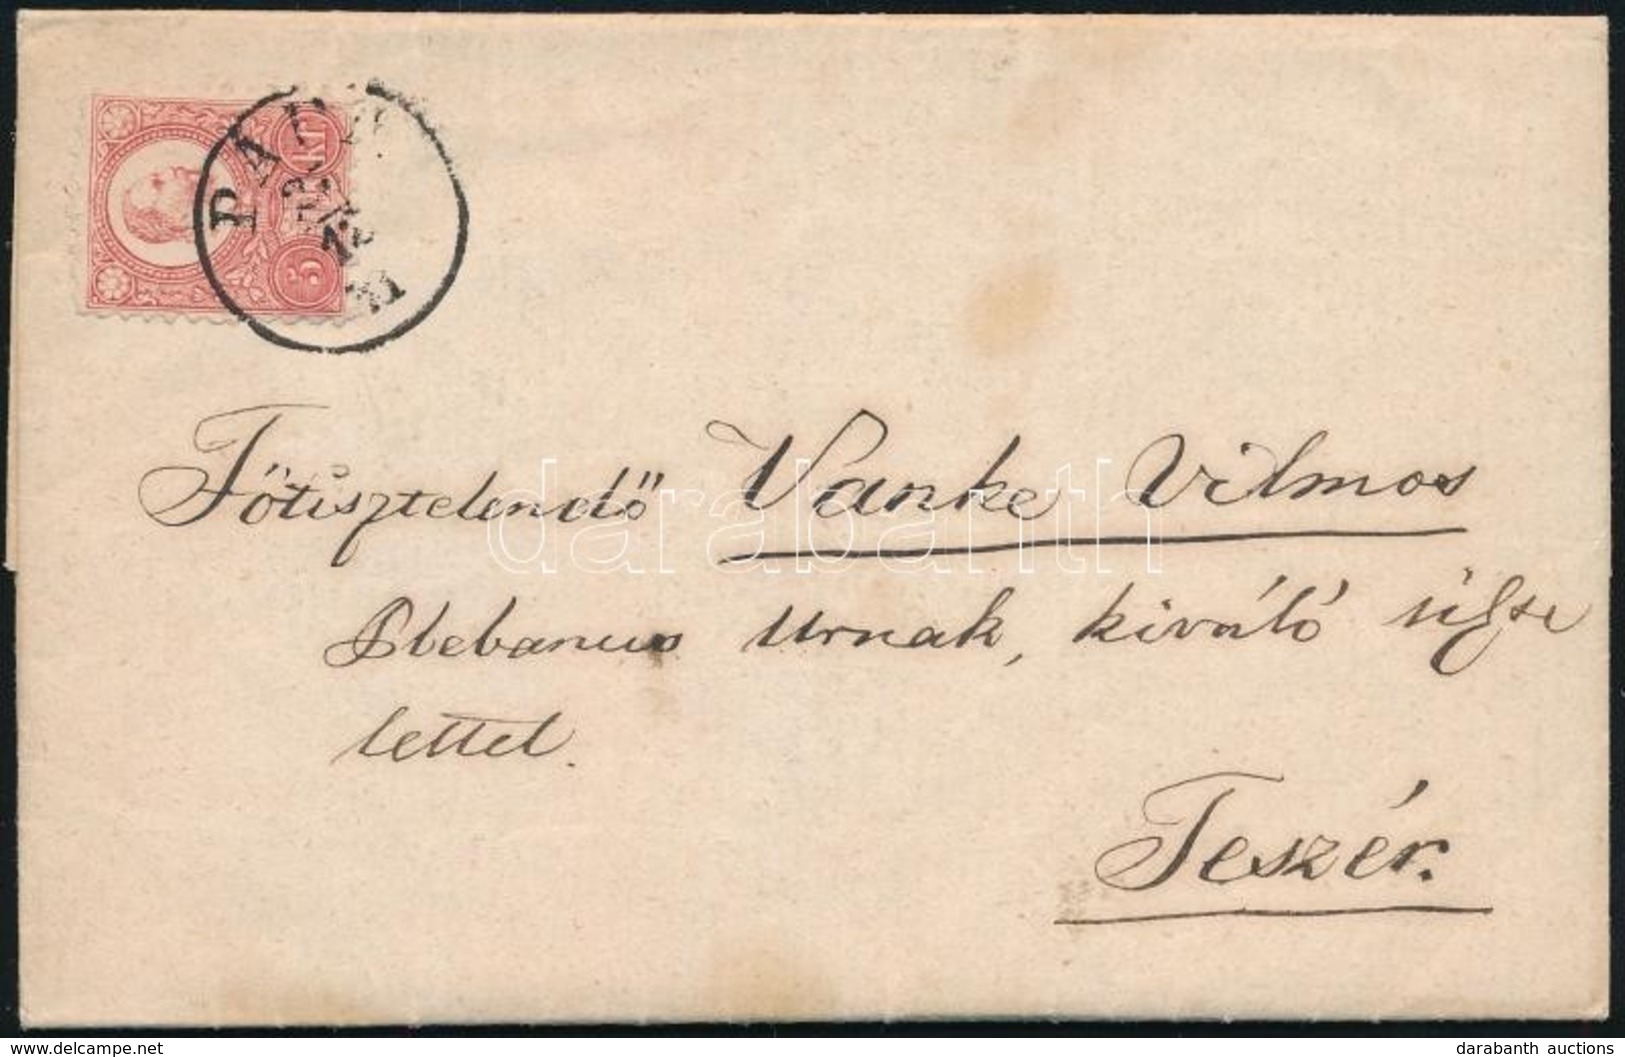 PÁPA
71
kr
5
Főtisztelendő Vanke Vilmos
Plebanus Urnak, kiváló tisztelettel.
Teszér.
darabanth
www.delcampe.net
darabanth auctions